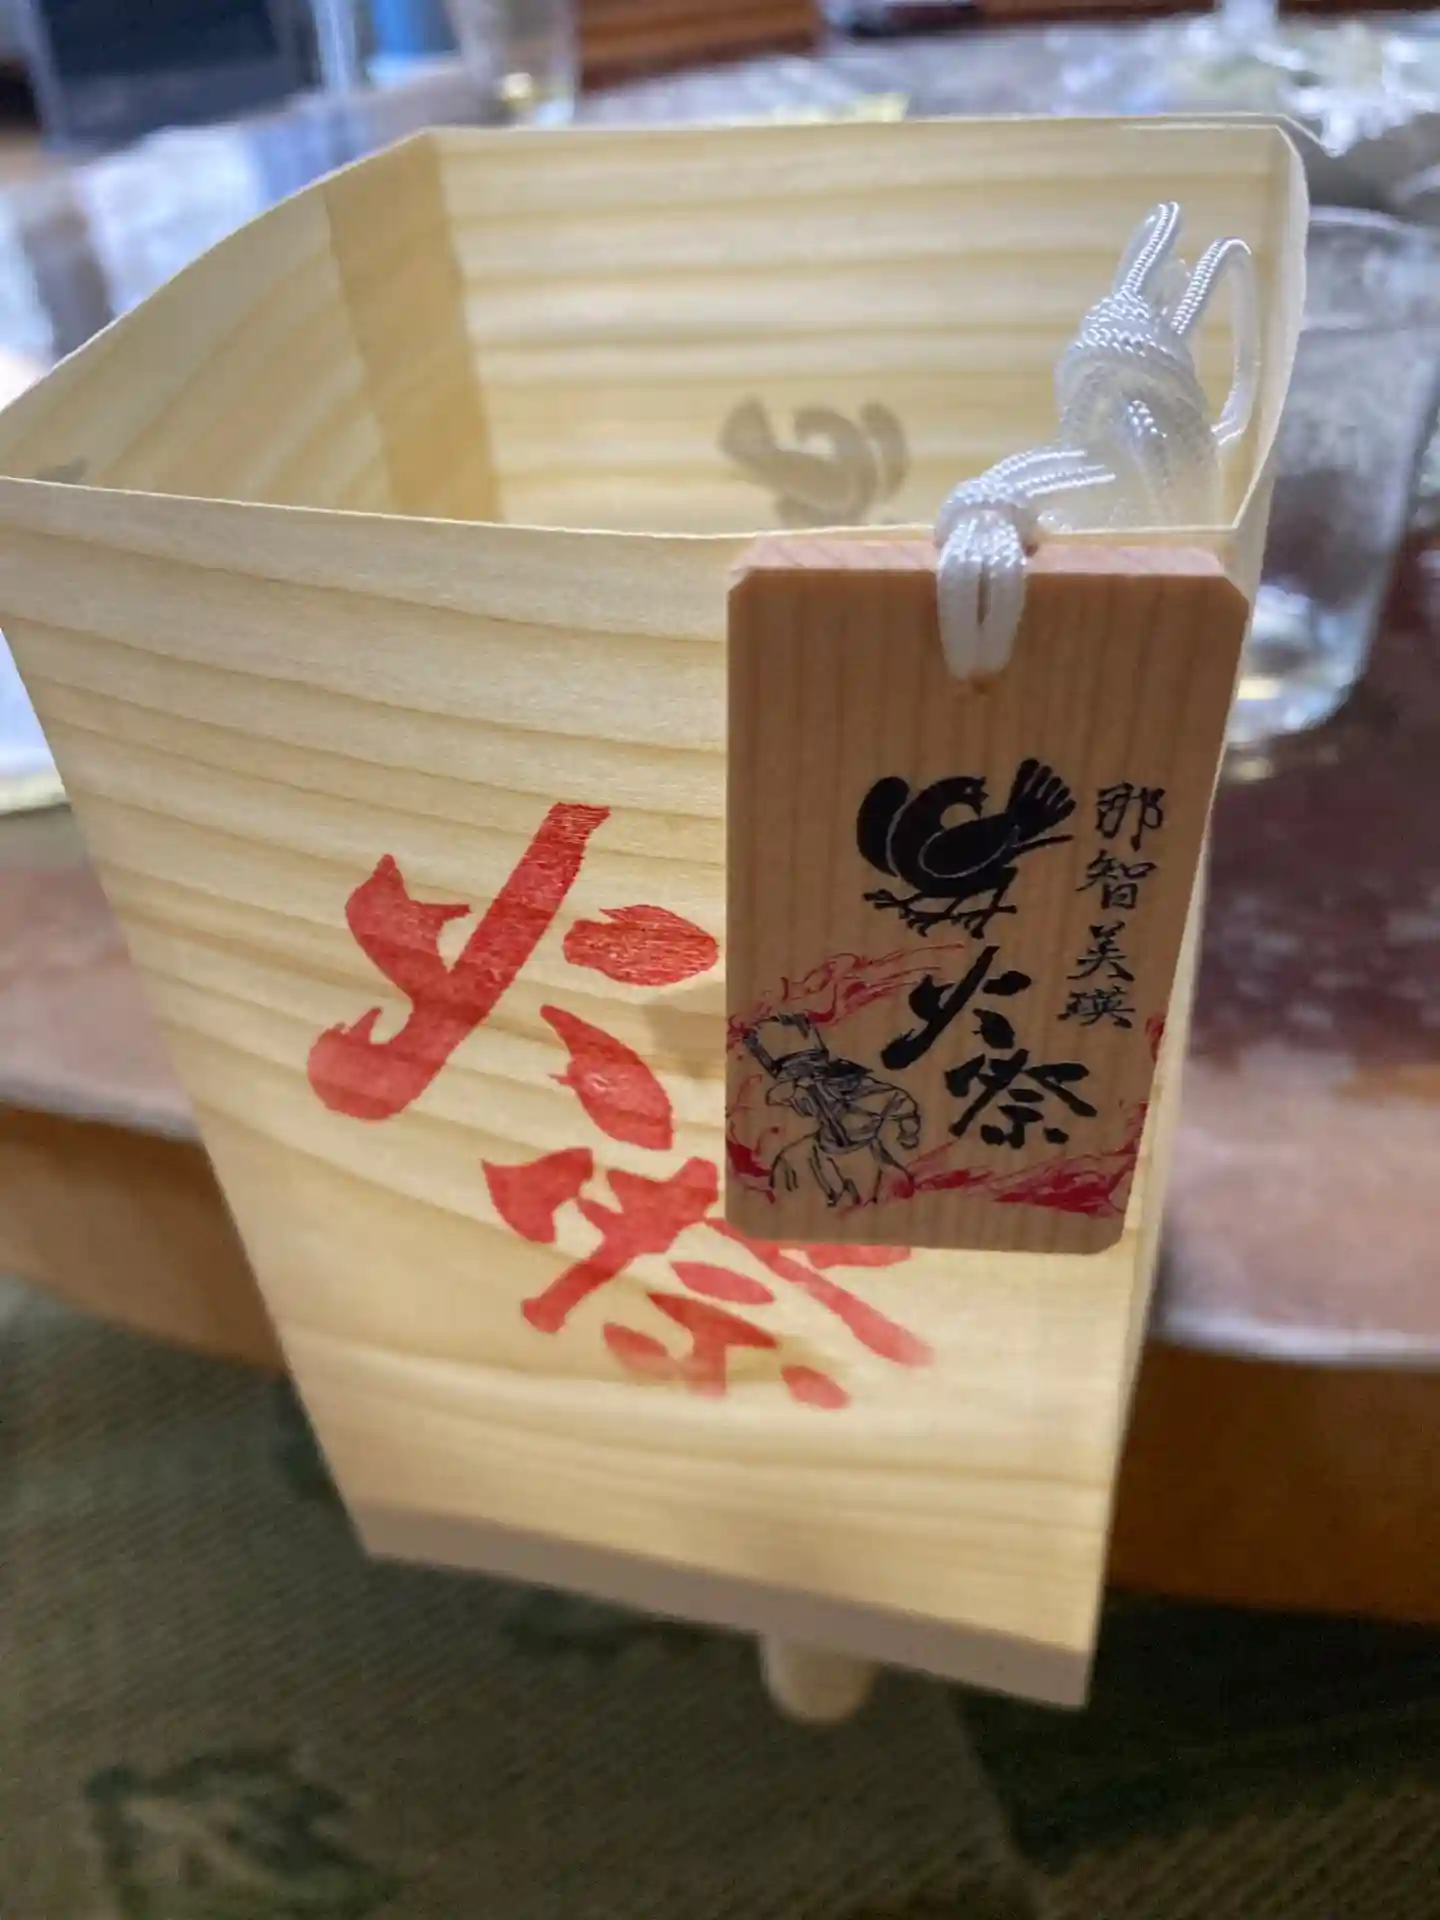 火祭
那智美瑛
火祭